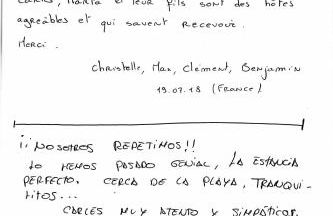 Carles, Marta et leur fils sont des hôtes
agréables et qui savent recevoir.
Merci.
Christelle, Max, Clément, Benjamin
19.07.18 (FRANCE)
¡¡NOSOTROS REPETIMOS!!
LO HEMOS PASADO GENIAL, LA ESTANCIA
PERFECTO. CERCA DE LA PLAYA, TRANQUI-
LITOS...
CARLES MUY ATENTO Y SIMPÁTICOS.